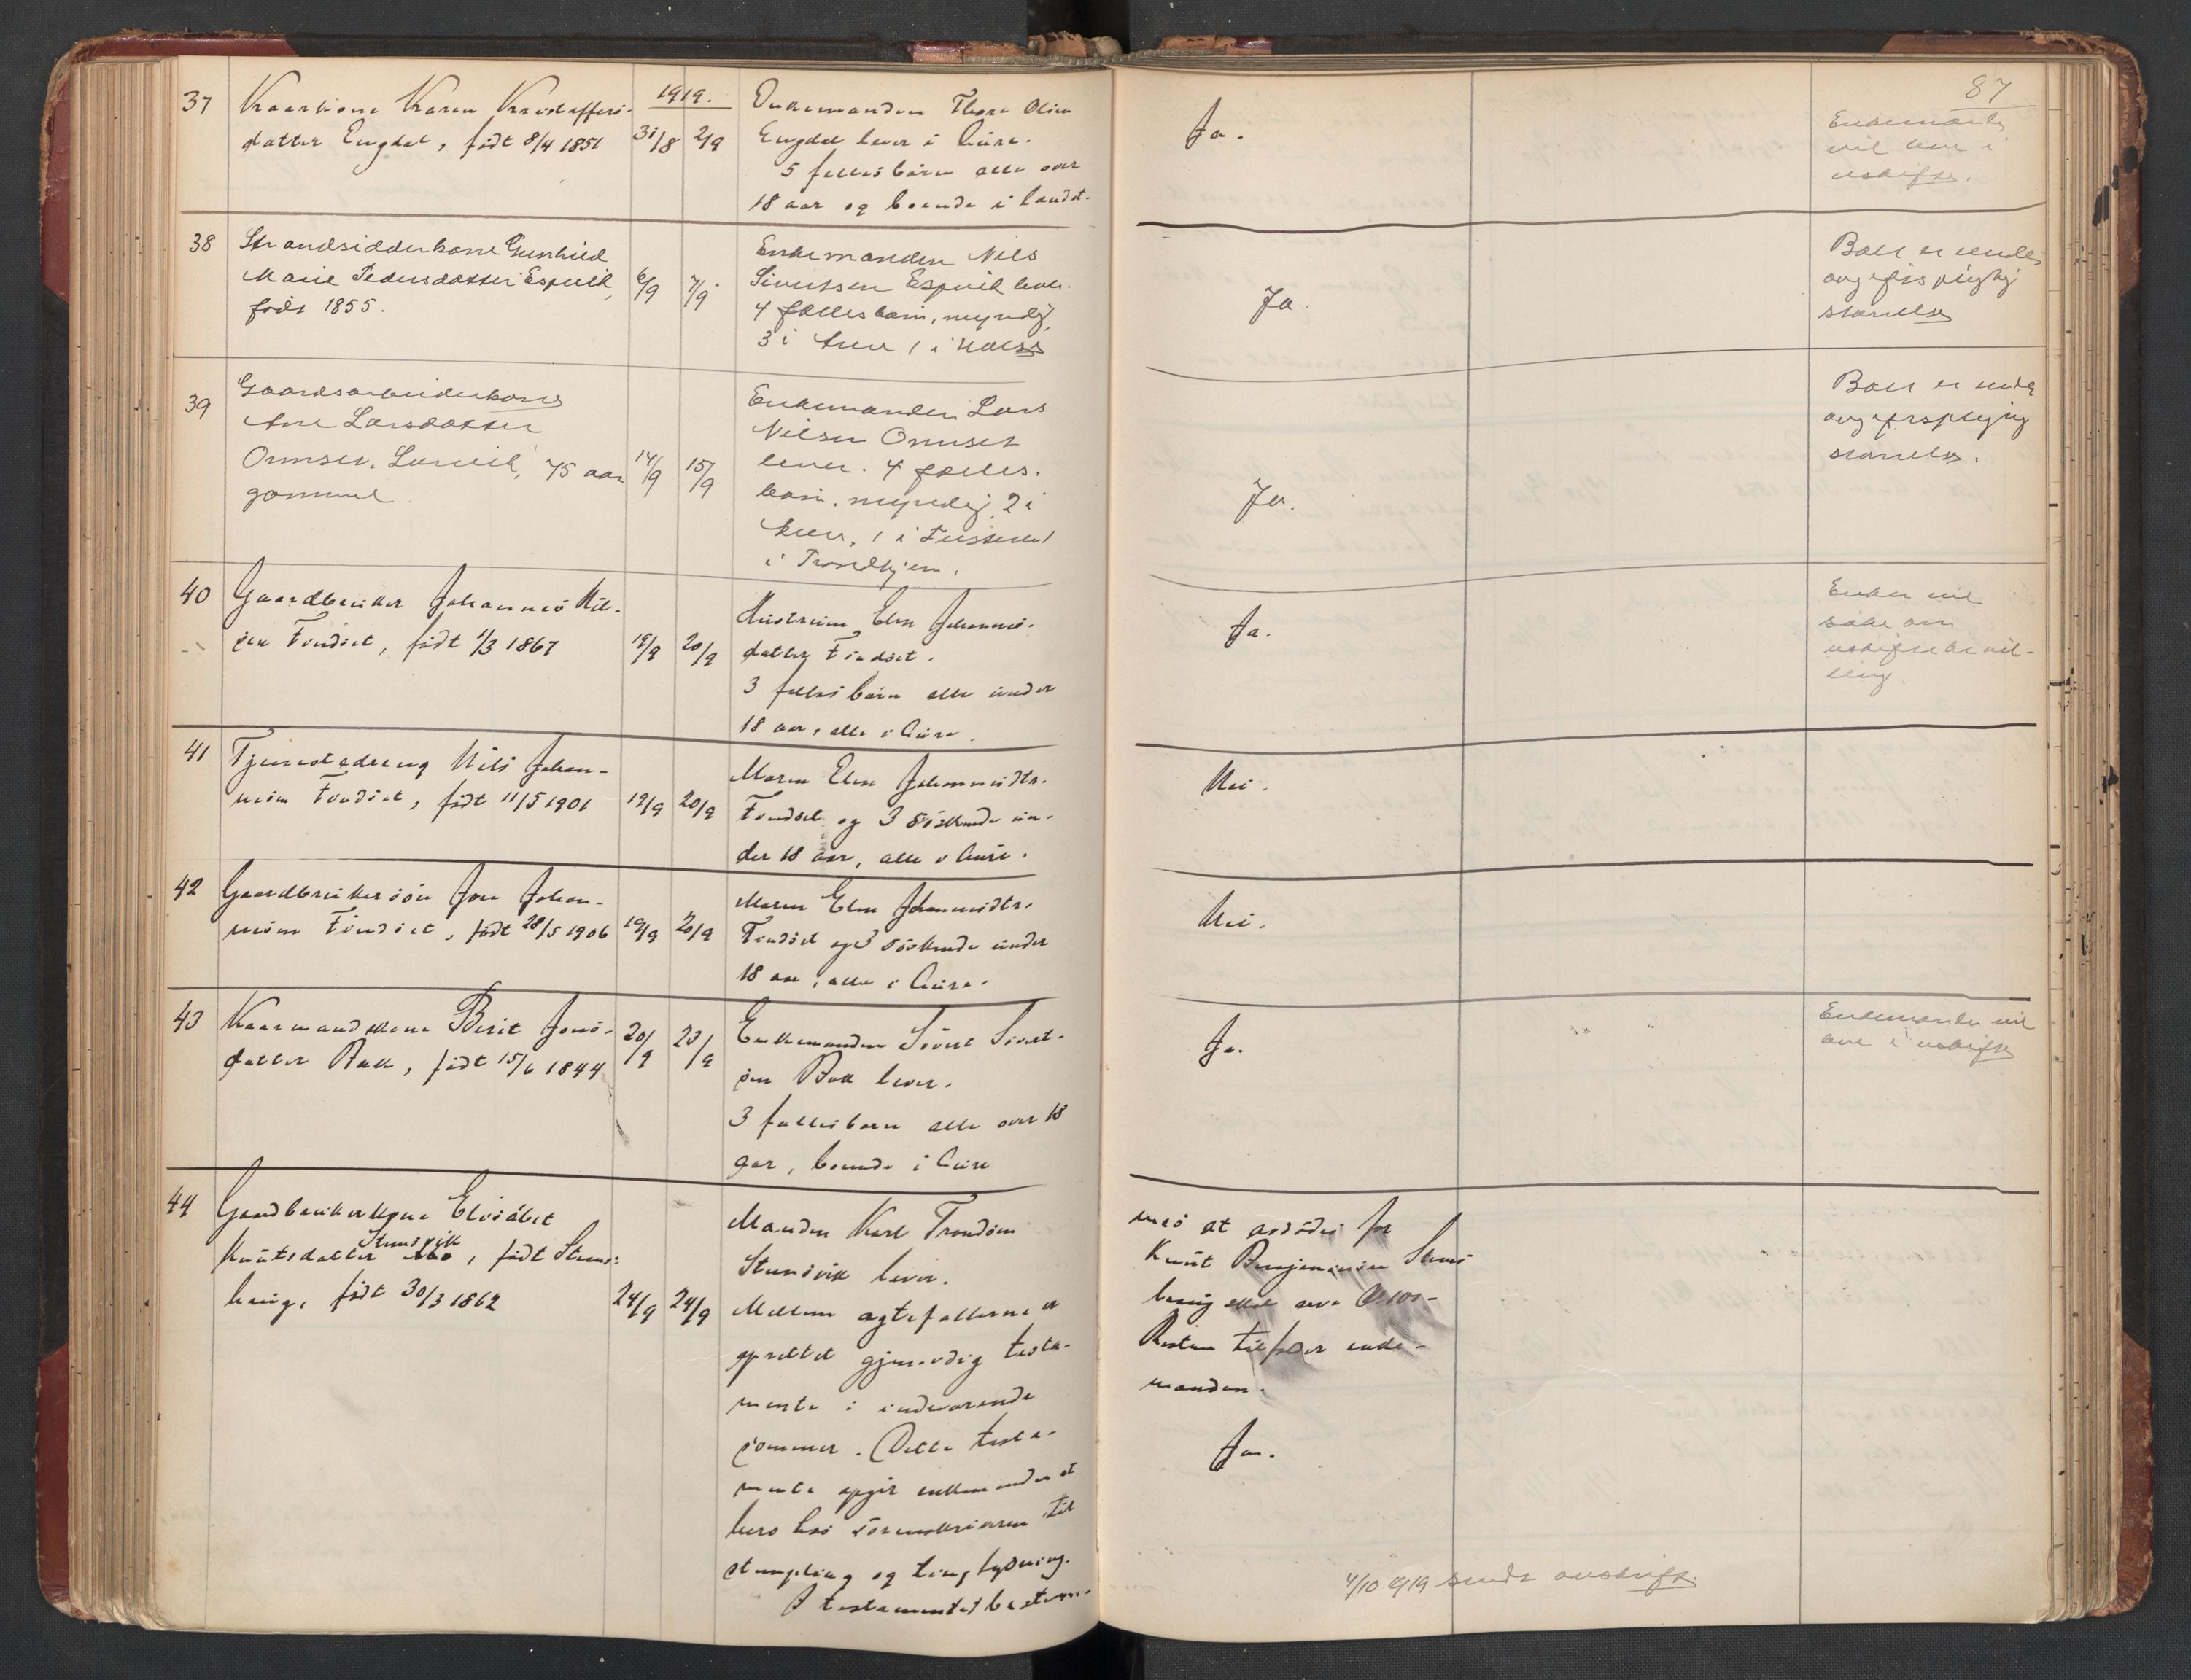 87
1919.
37 Kaarkone Karen Kristoffers-
datter Engdal, født 8/4 1851 31/8 2/9
Enkemanden Thore Olsen
Engdal lever i Aure.
5 fellesbørn alle over
18 aar og boende i landet.
Ja.
Enkemanden
vil
uskifte.
38 Strandsidderkone Gunhild
Marie Pedersdatter Espvik,
født 1855. 6/9 7/9
Enkemanden Nils
Sivertsen Espvik lever.
4 fællesbørn, myndig,
3 i Aure 1 i Halse
Ja.
Boet er under
avgiftspligtig
størrelse
39 Gaardsarbeiderkone
Ane Larsdatter
Omnset, Lervik, 75 aar
gammel 14/9 15/9
Enkemanden Lars
Nilsen Omnset
lever. 4 fælles.
børn, myndig, 2 i
Aure, 1 i Tustern 1
i Trondhjem.
Ja.
Boet er under
avgiftspligtig
størrelse.
40 Gaardbruker Johannes Nil-
sen Fondset, født 1/3 1867 19/9 20/9
Hustruen Elen Johannes-
datter Fondset.
3 fellesbørn alle under
18 aar, alle i Aure.
Ja.
Enken vil
søke om
uskiftebevil-
ling.
41 Tjenestedreng Nils Johan-
nesen Fondset, født 11/5 1901 19/9 20/9
Moren Elen Johannesdtr.
Fondset og 3 søskende un-
der 18 aar, alle i Aure.
Nei.
42 Gaardbrukersøn Jon Johan-
nesen Fondset, født 28/5 1906 19/9 20/9
Moren Elen Johannesdtr.
Fondset og 3 søskende under
18 aar, alle i Aure.
Nei.
43 Kaarmandskone Berit Jons-
datter Bak, født 15/6 1844 20/9 23/9
Enkemanden Sivert Sivert-
sen Bak lever.
3 fellesbørn alle over 18
aar, boende i Aure
Ja.
Enkemanden vil
i uskifte
44 Gaardbrukerkone Elisabet
Stensvik
Knutsdatter, født Stens-
haug, født 30/3 1862 24/9 24/9
Manden Karl Trondsen
Stensvik lever.
Mellem egtefellerne er
oprettet gjensidig testa-
mente i indeværende
sommer. Dette testa-
mente opgir enkemanden at
bero hos sorenskriveren til
stempling og tinglysning.
I testamentet bestem-
mes at avdødes far
Knut Benjaminsen Stens-
haug skal arve Kr 100-
Resten tilfalder enke-
manden.
Ja.
4/10 1919 sendt avskrift.